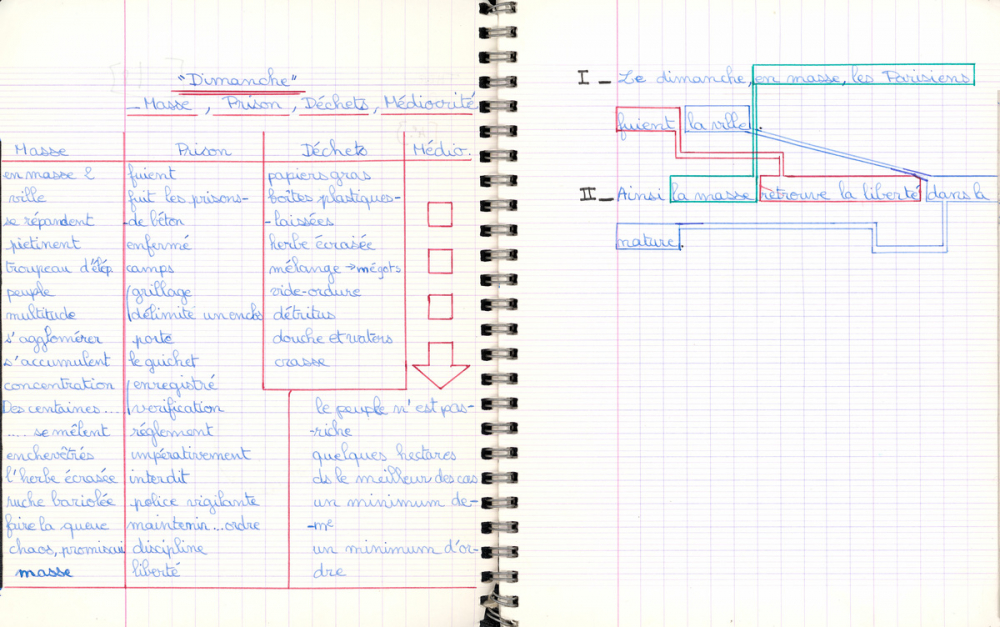 "Dimanche"
_Masse, Prison, Déchets, Médiocrité
Masse Prison Déchets Médio.
en masse 2 fuient papiers gras
ville fuit les prisons- boîtes plastiques-
se répandent -de béton -laissées
piétinent enfermé herbe écrasée
troupeau d'élép. camps mélange → mégots
peuple grillage vide-ordure
multitude délimite un enclos détritus
s'agglomérer porte douche et waters
s'accumulent le guichet crasse
concentration enregistré
Des centaines.... vérification le peuple n'est pas-
.... se mêlent réglement -riche
enchevêtrés impérativement quelques hectares
l'herbe écrasée interdit ds le meilleur des cas
ruche bariolée police vigilante un minimum de-
faire la queue maintenir...ordre -m²
chaos, promiscui discipline un minimum d'or-
masse liberté dre
I _ Le dimanche, en masse, les Parisiens
fuient la ville.
II _ Ainsi la masse retrouve la liberté dans la
nature.